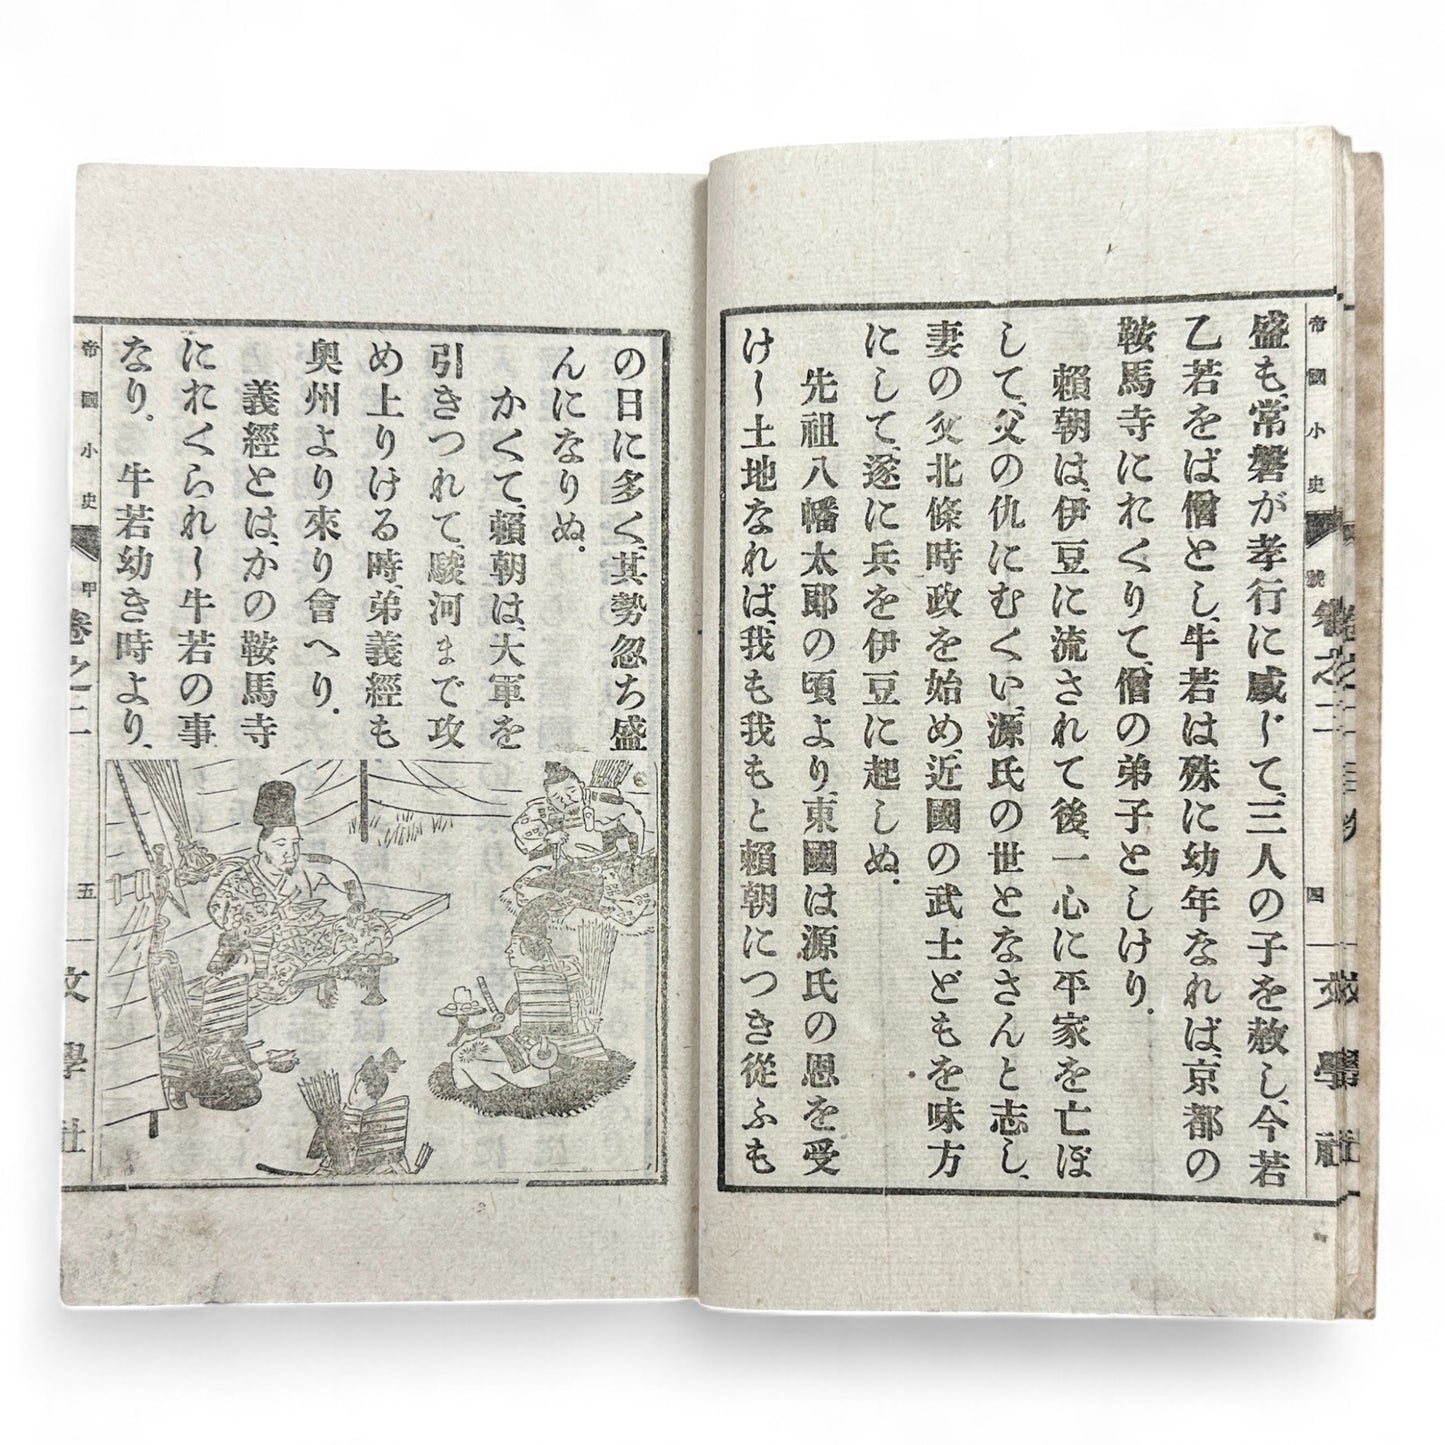 帝國小史 甲號 卷之二 四 文學社
盛も、常磐が孝行に感じて、三人の子を赦し、今若
乙若をば僧とし、牛若は殊に幼年なれば、京都の
鞍馬寺にれくりて、僧の弟子としけり。
賴朝は、伊豆に流されて後、一心に平家を亡ぼ
して、父の仇にむくい、源氏の世となさんと志し、
妻の父北條時政を始め、近國の武士どもを味方
にして、遂に兵を伊豆に起しぬ。
先祖八幡太郎の頃より、東國は源氏の恩を受
けし土地なれば、我も我もと賴朝につき從ふも
の日に多く、其勢忽ち盛
んになりぬ。
かくて、賴朝は、大軍を
引きつれて、駿河まで攻
め上りける時、弟義經も
奧州より來り會へり。
義經とは、かの鞍馬寺
にれくられし牛若の事
なり。牛若幼き時より、
帝國小史 甲 卷之二 五 文學社